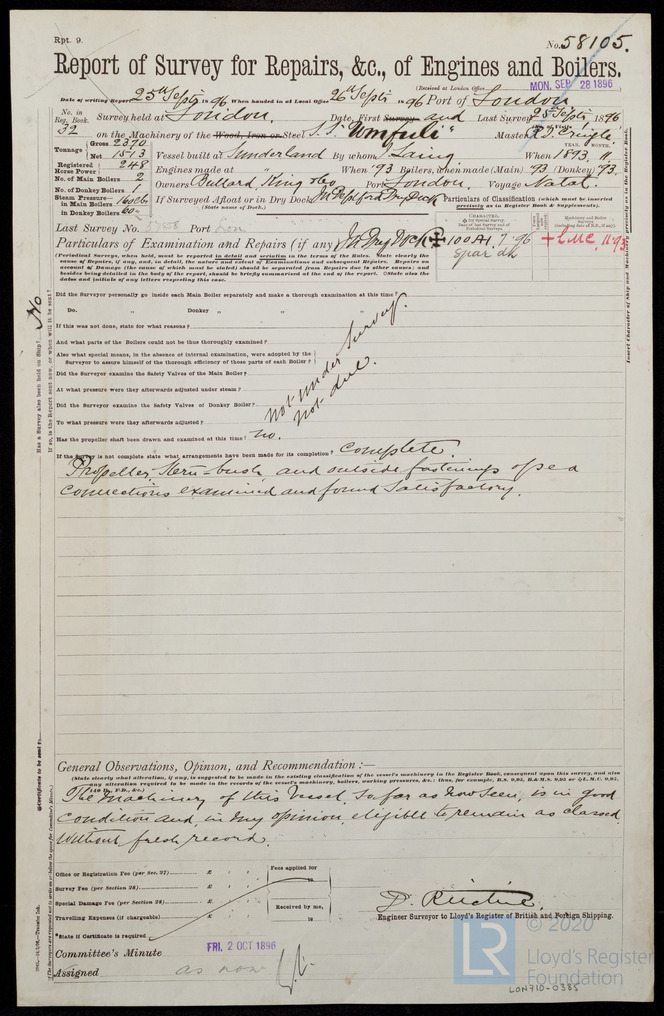 Rpt. 9.
No. 58105.
Report of Survey for Repairs, &c., of Engines and Boilers.
(Received at London Office
MON. SEP 28 1896
Date of writing Report 25th Septr 1896 When handed in at Local Office 26th Septr 1896 Port of London
No. in Reg. Book. 32
Survey held at London. Date, First Survey and Last Survey 25 Septr 1896
on the Machinery of the Wood, Iron or Steel S.S. "Umfuli" Master R.S. Cringle
Tonnage Gross 2370
Net 1513
Vessel built at Sunderland By whom J. Laing. When 1893. 11
YEAR. MONTH.
Registered Horse Power 248
Engines made at " " When '93 Boilers, when made (Main) '93 (Donkey) 93
No. of Main Boilers 2
Owners Bullard King & Co Port London. Voyage Natal.
No. of Donkey Boiler 1
Steam Pressure— in Main Boilers 160 lb
in Donkey Boiler 60
If Surveyed Afloat or in Dry Dock
(State name of Dock.)
Particulars of Classification (which must be inserted precisely as in Register Book & Supplements).
Last Survey No. Port Lon
Particulars of Examination and Repairs (if any) In Dry Dock
100A1. 7.96
spar dk
+LMC. 11.93
(Periodical Surveys, when held, must be reported in detail and seriatim in the terms of the Rules. State clearly the
cause of Repairs, if any, and, in detail, the nature and extent of Examinations and subsequent Repairs. Repairs on
account of Damage (the cause of which must be stated) should be separated from Repairs due to other causes; and
besides being detailed in the body of the report, should be briefly summarised at the end of the report. State also the
dates and initials of any letters respecting this case.
Did the Surveyor personally go inside each Main Boiler separately and make a thorough examination at this time?
Do. " Donkey " " "
If this was not done, state for what reasons?
And what parts of the Boilers could not be thus thoroughly examined?
Also what special means, in the absence of internal examination, were adopted by the
Surveyor to assure himself of the thorough efficiency of those parts of each Boiler?
Did the Surveyor examine the Safety Valves of the Main Boiler?
At what pressure were they afterwards adjusted under steam?
Did the Surveyor examine the Safety Valves of Donkey Boiler?
To what pressure were they afterwards adjusted?
not under Survey.
not due.
Has the propeller shaft been drawn and examined at this time? no.
If the Survey is not complete state what arrangements have been made for its completion? Complete.
Propeller, Stern-bush and outside fastenings of sea
connections examined and found satisfactory.
Has a Survey also been held on Ship? No
If so, is the Report sent now, or when will it be sent?
General Observations, Opinion, and Recommendation:—
(State clearly what alteration, if any, is suggested to be made in the existing classification of the vessel's machinery in the Register Book, consequent upon this survey, and also
The Machinery of this Vessel, so far as now seen, is in good
condition and, in my opinion, eligible to remain as classed
without fresh record.
Office or Registration Fee (per Sec. 27) £
Survey Fee (per Section 28) £
Special Damage Fee (per Section 28) £
Travelling Expenses (if chargeable) £
Fees applied for
18
Received by me,
18
*State if Certificate is required
D. Ritchie
Engineer Surveyor to Lloyd's Register of British and Foreign Shipping.
Committee's Minute
FRI. 2 OCT 1896
Assigned as now
© 2020
LR
Lloyd's Register
Foundation
LON710-0385